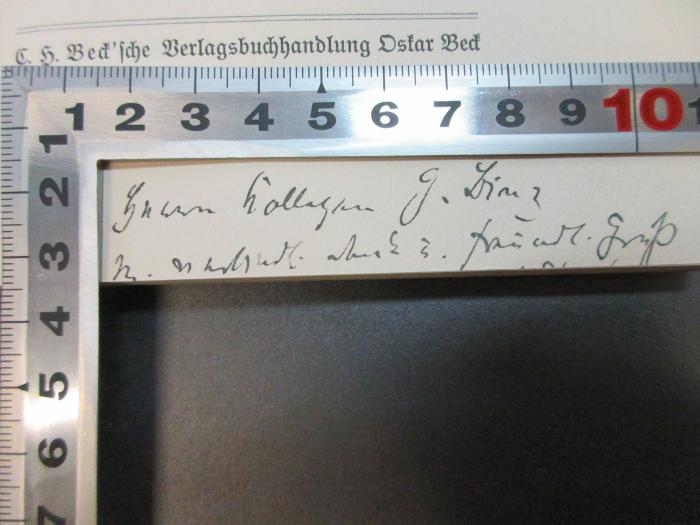 C. H. Beck'sche Verlagsbuchhandlung Oskar Beck
1 2 3 4 5 6 7 8 9 10 1
1
2
3
4
5
6
7
Herrn Kollegen G.
m. verbindl. Dank u. freundl. Gruß